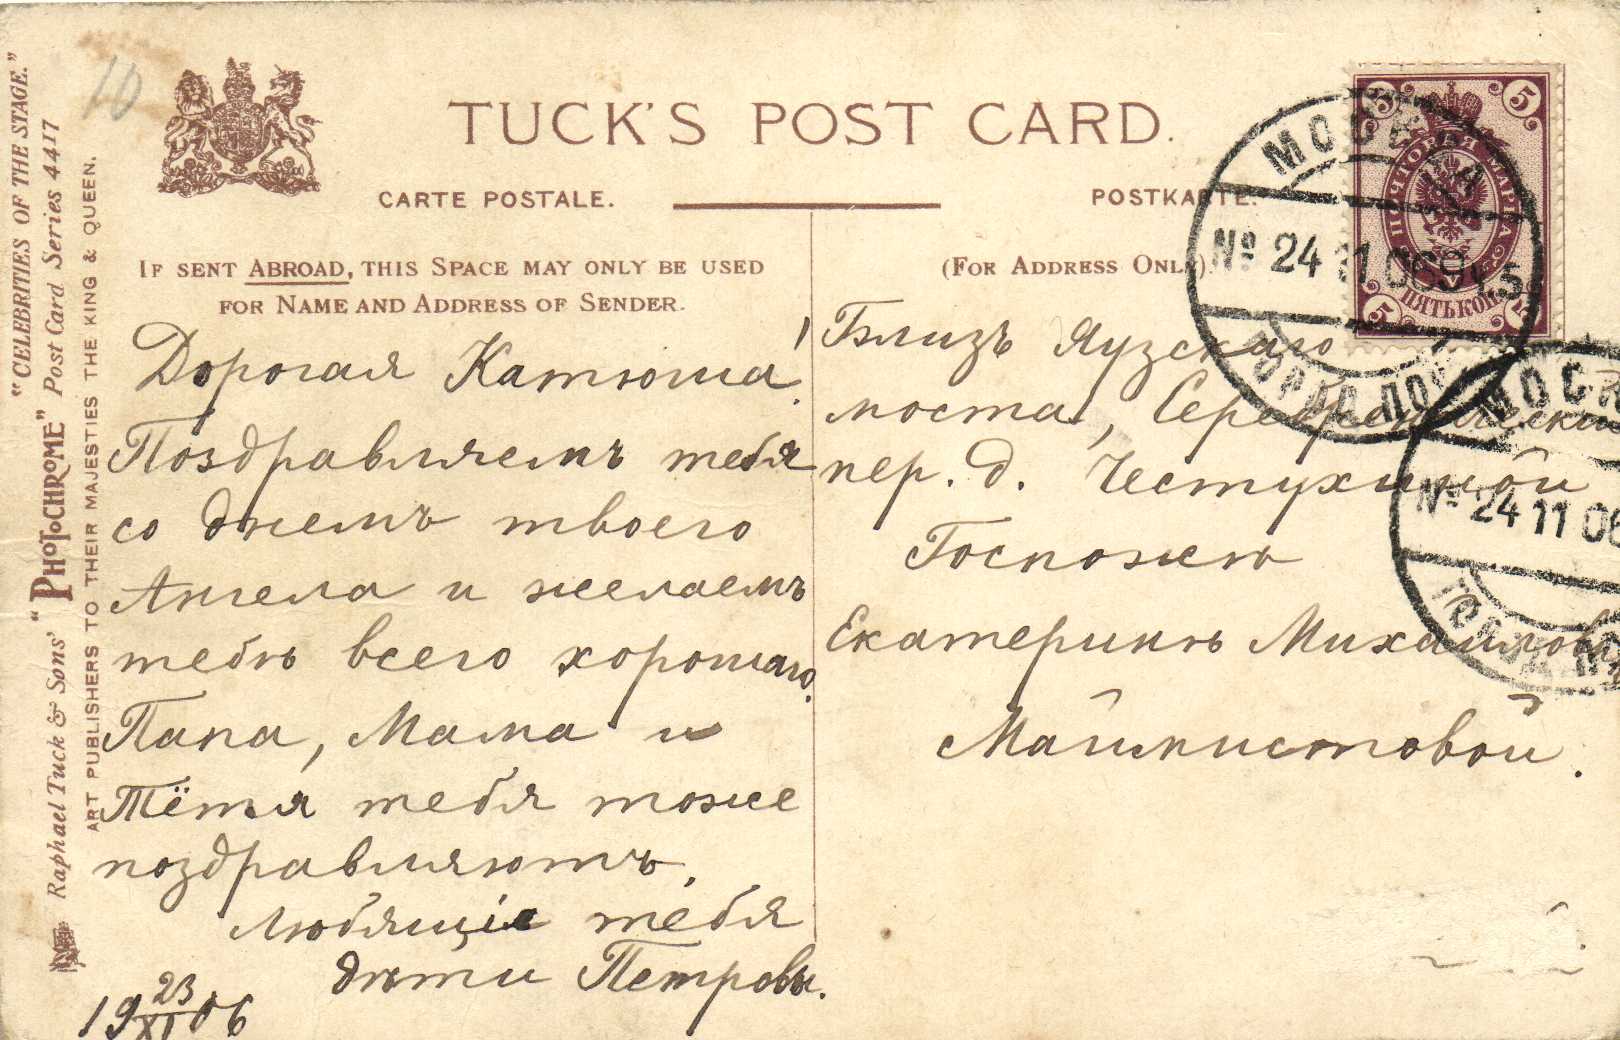 "CELEBRITIES OF THE STAGE."
Raphael Tuck & Sons' "PHOTOCHROME" Post Card Series 4417
ART PUBLISHERS TO THEIR MAJESTIES THE KING & QUEEN.
10
TUCK'S POST CARD.
CARTE POSTALE.
POSTKARTE.
IF SENT ABROAD, THIS SPACE MAY ONLY BE USED
FOR NAME AND ADDRESS OF SENDER.
Дорогая Катюша!
Поздравляемъ тебя
со днемъ твоего
Ангела и желаемъ
тебѣ всего хорошаго.
Папа, Мама и
Тётя тебя тоже
поздравляютъ.
Любящіе тебя
дѣти Петровы.
19 23/XI 06
(FOR ADDRESS ONLY)
Близъ Яузскаго
моста, Серебрническій
пер. д. Честухиной
Госпожѣ
Екатеринѣ Михайловнѣ
5 5
ПОЧТОВАЯ МАРКА
ПЯТЬ КОП.
5 5
МОСКВА
№ 24 11 06
МОСК
№ 24 11 06